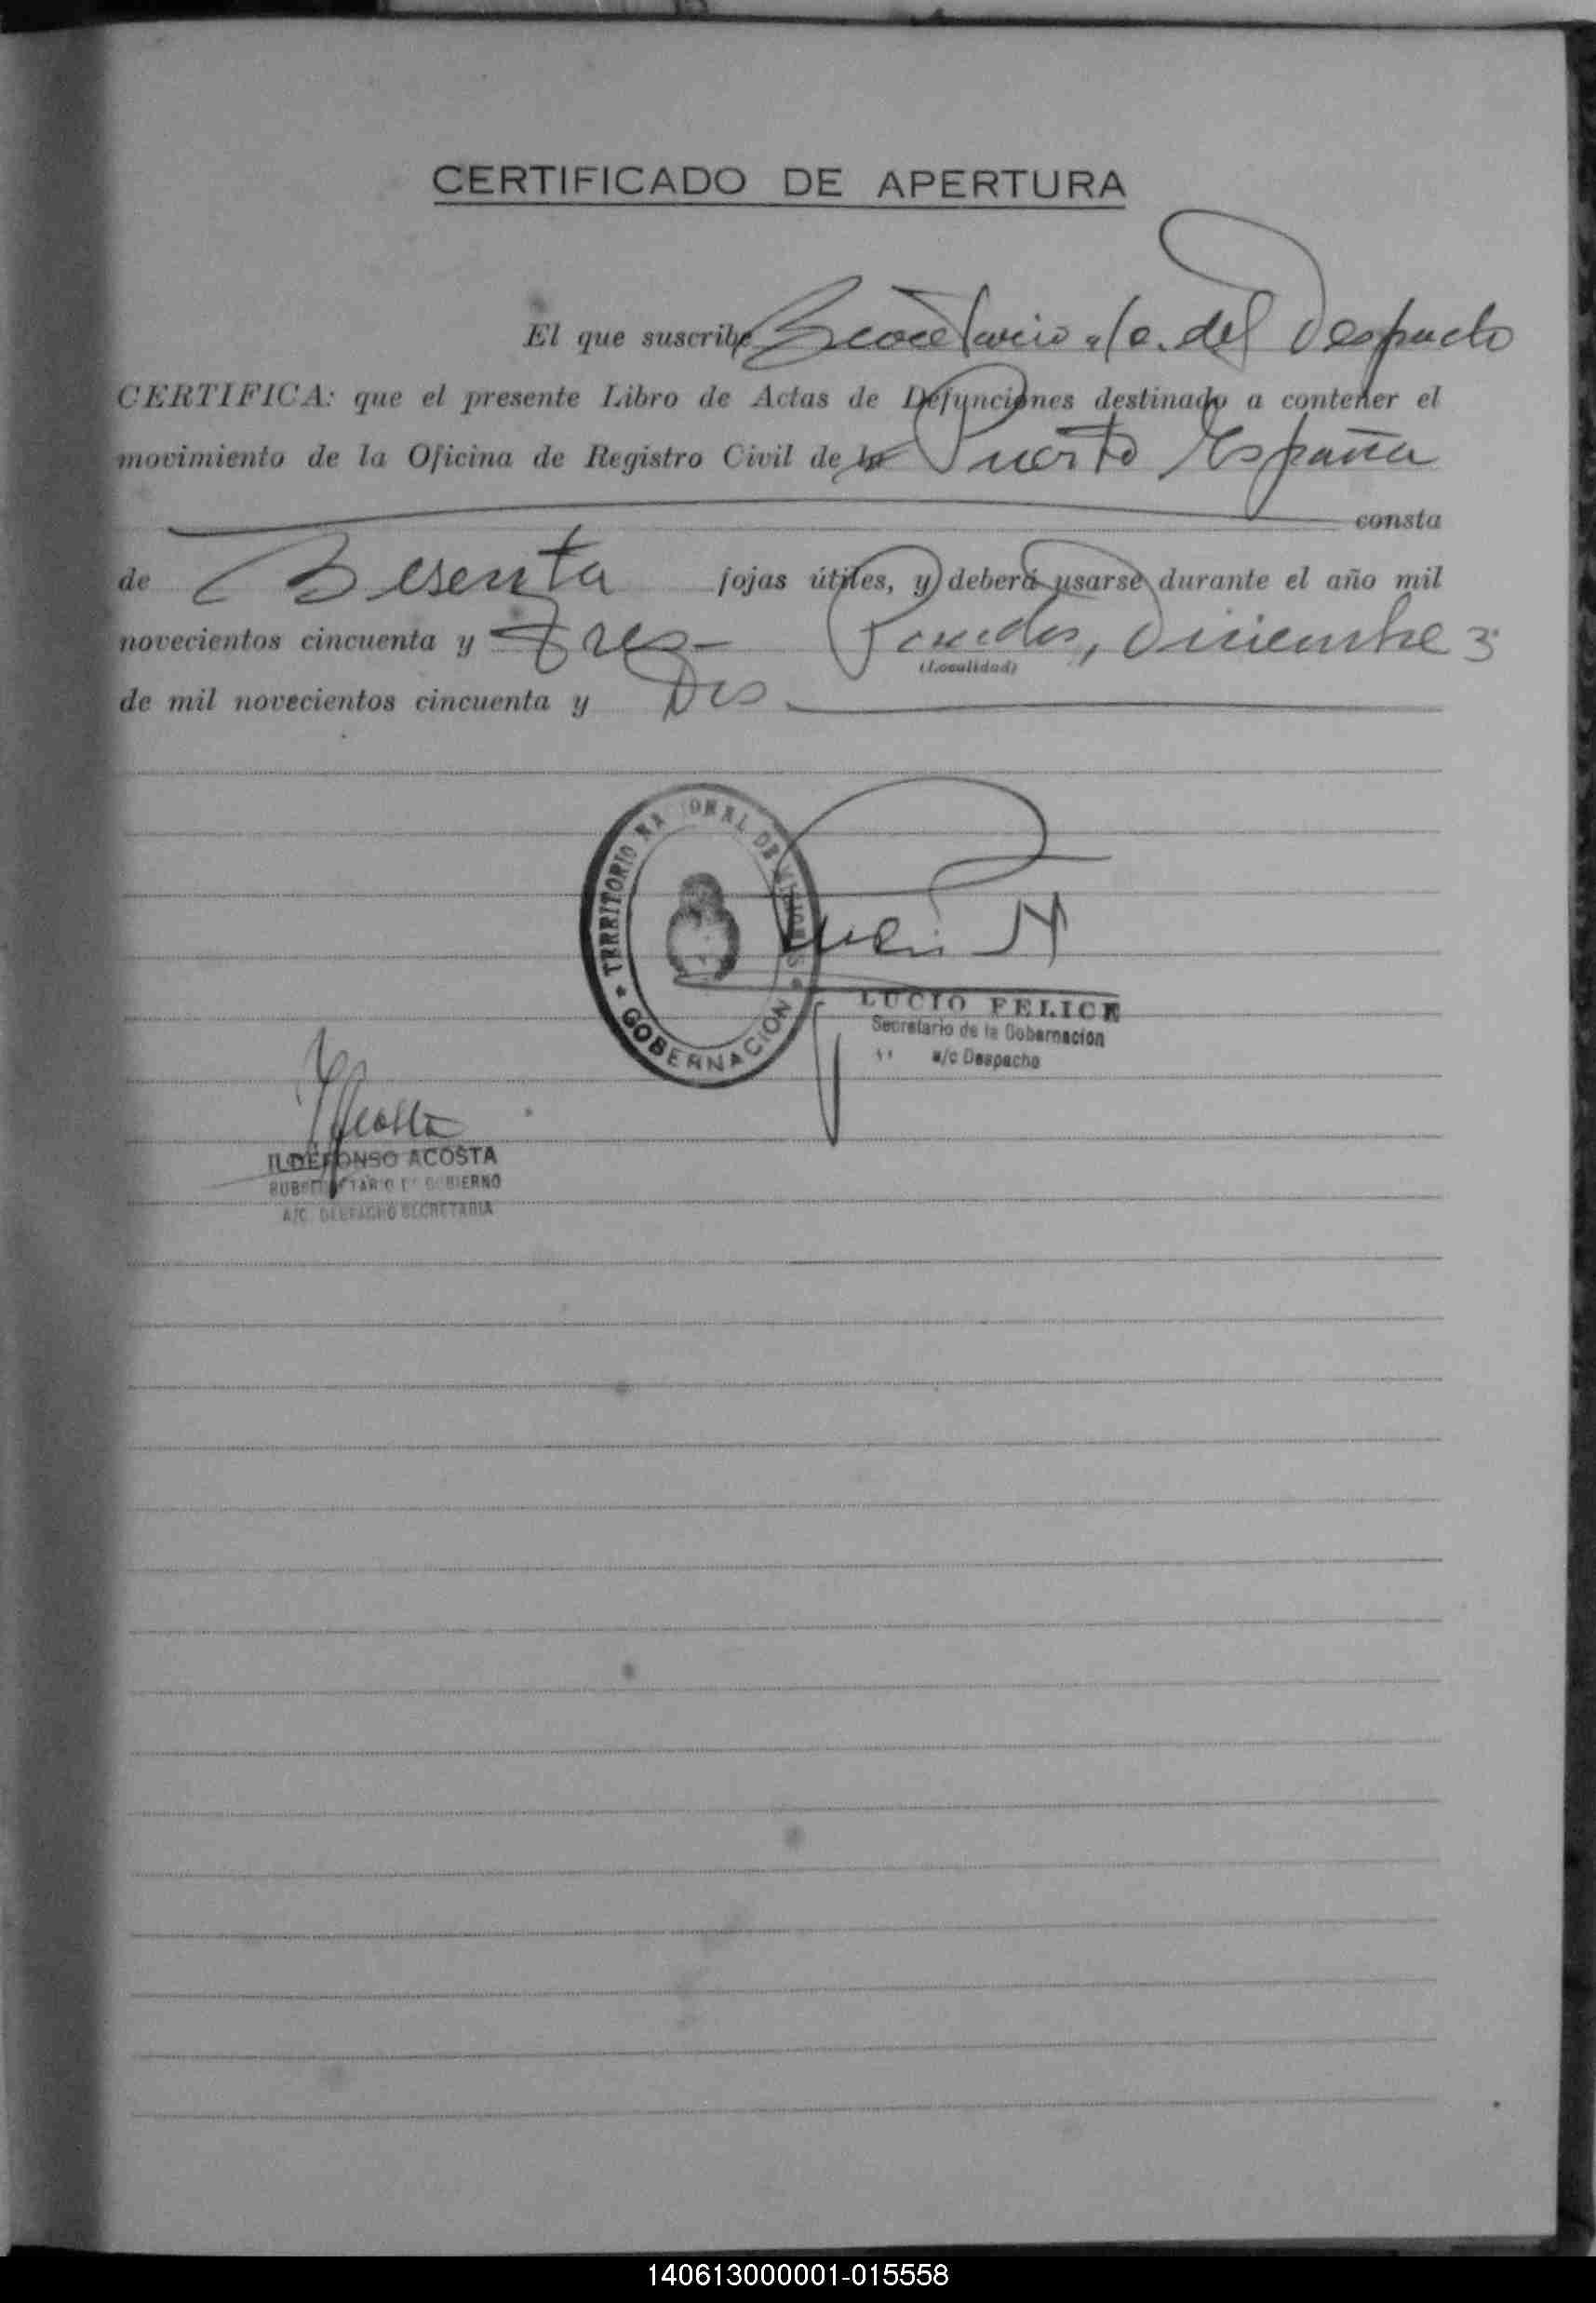 CERTIFICADO DE APERTURA
El que suscribe Secretario a/c. del Despacho
CERTIFICA: que el presente Libro de Actas de Defunciones destinado a contener el
movimiento de la Oficina de Registro Civil de la Puerto España
consta
de Sesenta fojas útiles, y deberá usarse durante el año mil
novecientos cincuenta y tres - Posadas, Diciembre 3
(Localidad)
de mil novecientos cincuenta y Dos
TERRITORIO NACIONAL DE MISIONES
GOBERNACION
LUCIO FELICE
Secretario de la Gobernación
a/c Despacho
Acosta
ILDEFONSO ACOSTA
SUBSECRETARIO DE GOBIERNO
A/C. DESPACHO SECRETARIA
140613000001-015558